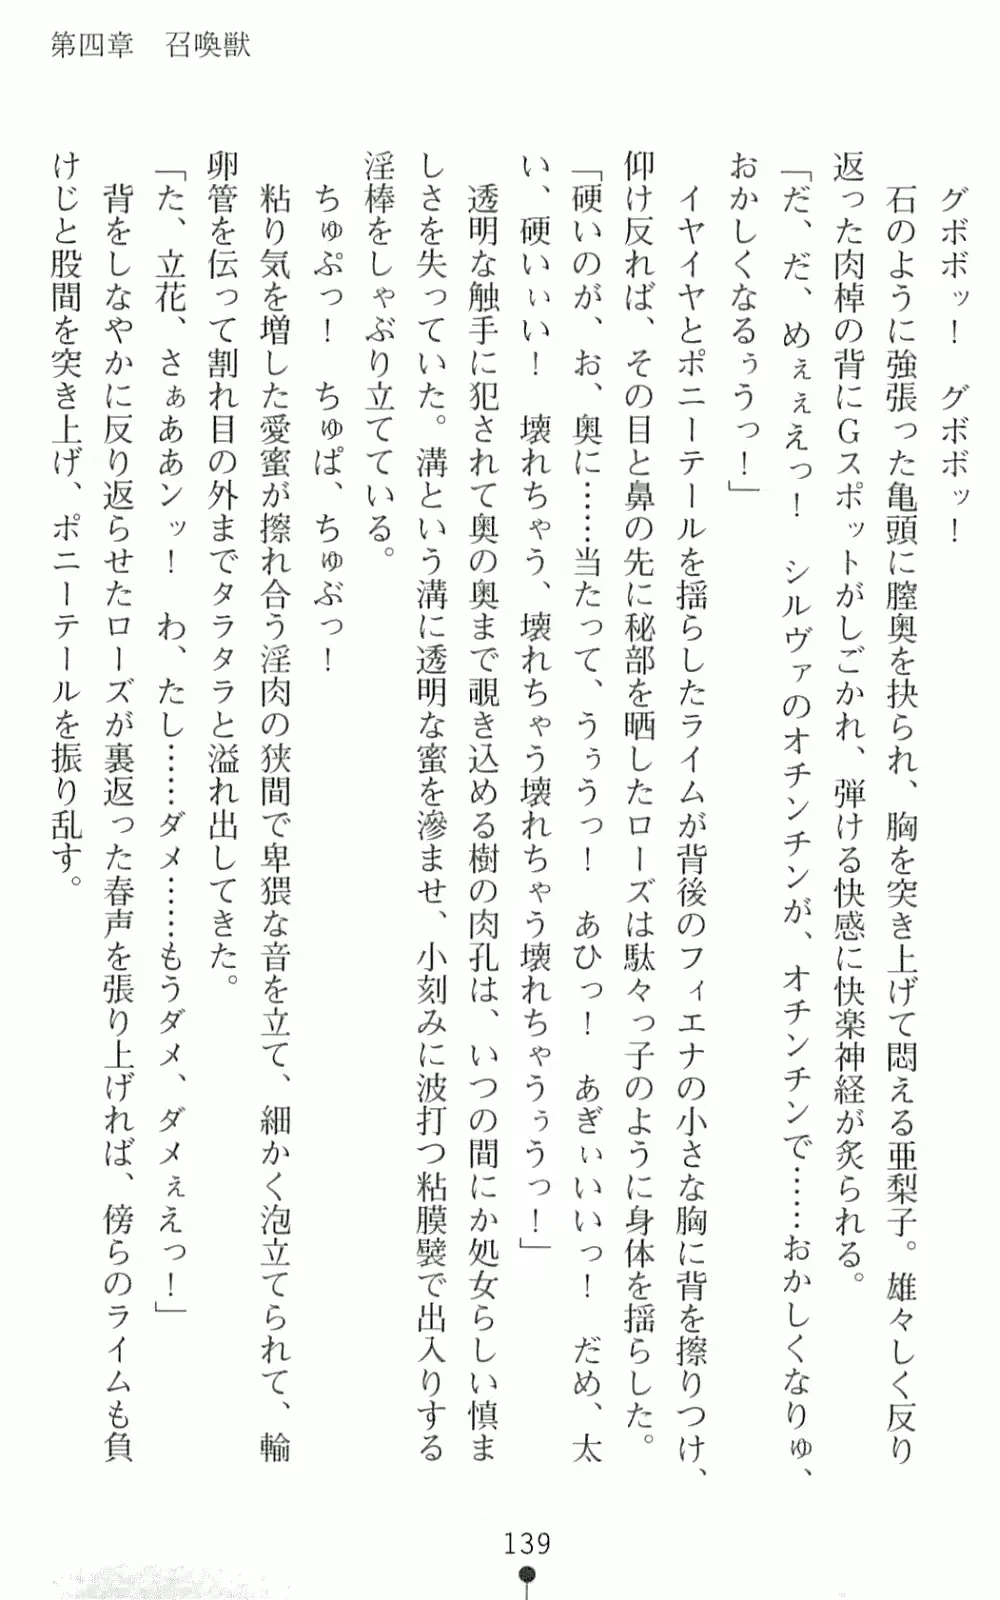 第四章　召喚獣
グボボッ！　グボボッ！
石のように強張った亀頭に膣奥を抉られ、胸を突き上げて悶える亜梨子。雄々しく反り
返った肉棹の背にGスポットがしごかれ、弾ける快感に快楽神経が炙られる。
「だ、だ、めぇぇえっ！　シルヴァのオチンチンが、オチンチンで……おかしくなりゅ、
おかしくなるぅうっ！」
イヤイヤとポニーテールを揺らしたライムが背後のフィエナの小さな胸に背を擦りつけ、
仰け反れば、その目と鼻の先に秘部を晒したローズは駄々っ子のように身体を揺らした。
「硬いのが、お、奥に……当たって、うぅうっ！　あひっ！　あぎぃいいっ！　だめ、太
い、硬いぃい！　壊れちゃう、壊れちゃう壊れちゃう壊れちゃうぅうっ！」
透明な触手に犯されて奥の奥まで覗き込める樹の肉孔は、いつの間にか処女らしい慎ま
しさを失っていた。溝という溝に透明な蜜を滲ませ、小刻みに波打つ粘膜襞で出入りする
淫棒をしゃぶり立てている。
ちゅぷっ！　ちゅぱ、ちゅぶっ！
粘り気を増した愛蜜が擦れ合う淫肉の狭間で卑猥な音を立て、細かく泡立てられて、輸
卵管を伝って割れ目の外までタラタラと溢れ出してきた。
「た、立花、さぁああンッ！　わ、たし……ダメ……もうダメ、ダメぇえっ！」
背をしなやかに反り返らせたローズが裏返った春声を張り上げれば、傍らのライムも負
けじと股間を突き上げ、ポニーテールを振り乱す。
139